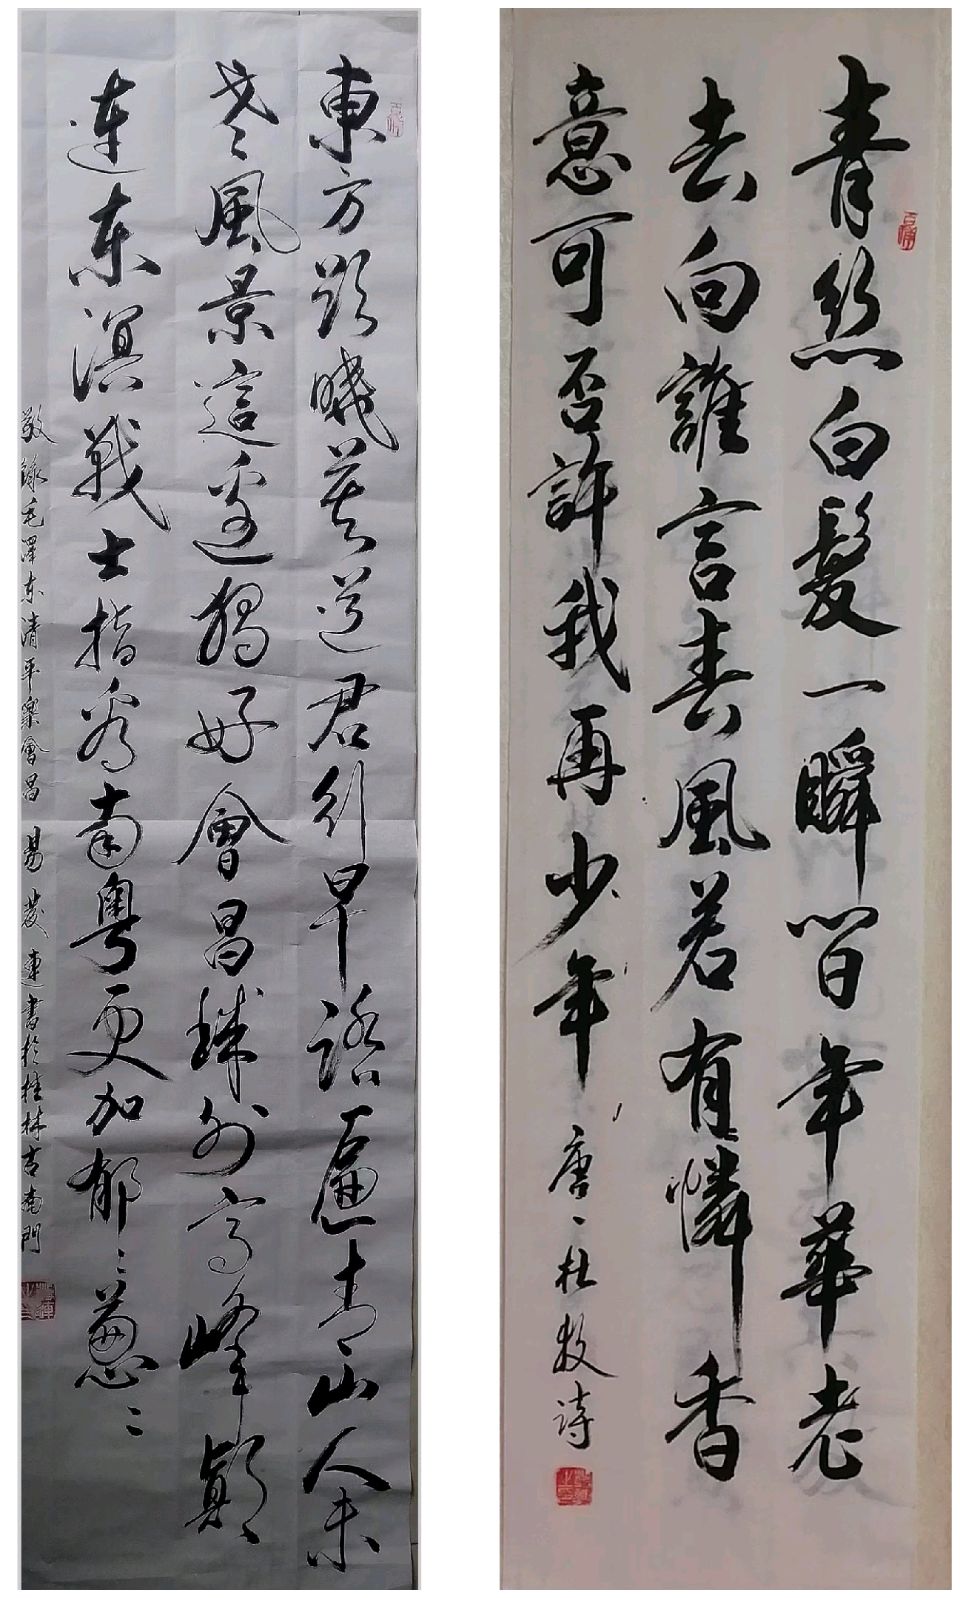 東方欲曉莫道君行早踏遍青山人未
老風景這邊獨好會昌城外高峰顛
連东溟戰士指看南粵更加郁〻蔥〻
敬錄毛澤东清平樂會昌 易 連書於桂林 門
青絲白髮一瞬間年華老
去向誰言春風若有憐香
意可否許我再少年 唐、杜牧詩